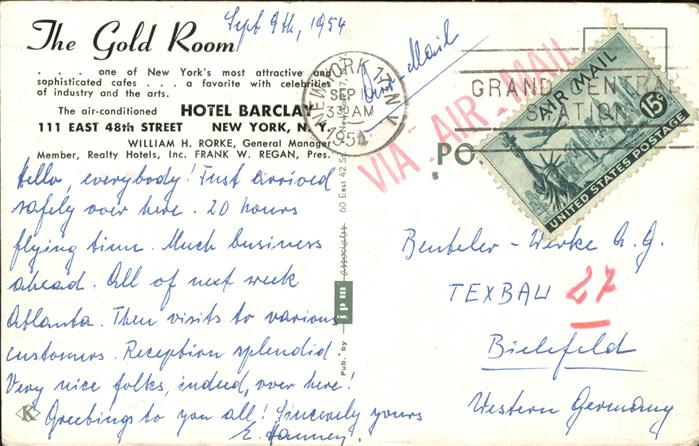 Sept 9th, 1954
The Gold Room
. . . one of New York's most attractive and
sophisticated cafes . . . a favorite with celebrities
of industry and the arts.
The air-conditioned HOTEL BARCLAY
111 EAST 48th STREET NEW YORK, N. Y.
WILLIAM H. RORKE, General Manager
Member, Realty Hotels, Inc. FRANK W. REGAN, Pres.
Hello, everybody! Just arrived
safely over here. 20 hours
flying time. Much business
ahead. All of next week
Atlanta. Then visits to various
customers. Reception splendid
Very nice folks, indeed, over here!
Greetings to you all! Sincerely yours
E. Hanney.
K
Pub. by ipm
60 East 42 St.
NEW YORK 17, N.Y.
SEP 1
330 AM
1954
Air-Mail
VIA AIR MAIL
GRAND CENTRAL
STATION
AIR MAIL
15¢
UNITED STATES POSTAGE
PO
Benteler-Werke A.G.
TEXBAU 27
Bielefeld
Western Germany